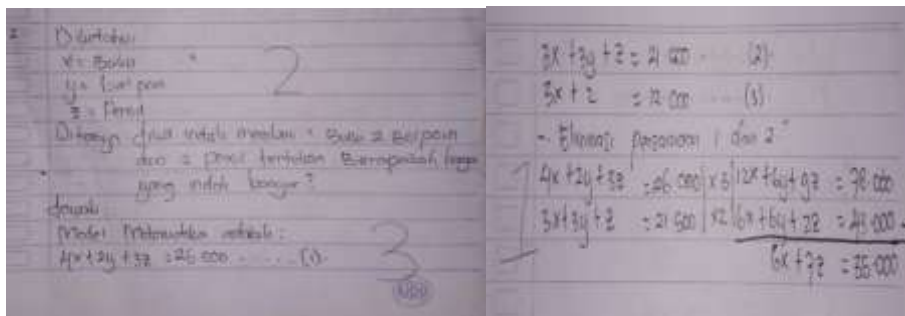 Diketahui
x = Buku
y = pen
z = Pensil
2
Ditanya jika indah membeli Buku 2 Bolpoin
dan 2 pensil tentukan Berapakah harga
yang indah bayar?
Jawab:
Model Matematika
4x + 2y + 3z = 26 000 ...... (1).
3
3x + 3y + z = 21 500 ... (2).
3x + z = 12 000 ... (3)
Eliminasi persamaan 1 dan 2
4x + 2y + 3z = 26 000 | x3 | 12x + 6y + 9z = 78 000
3x + 3y + z = 21 500 | x2 | 6x + 6y + 2z = 43 000 -
6x + 7z = 35 000
1